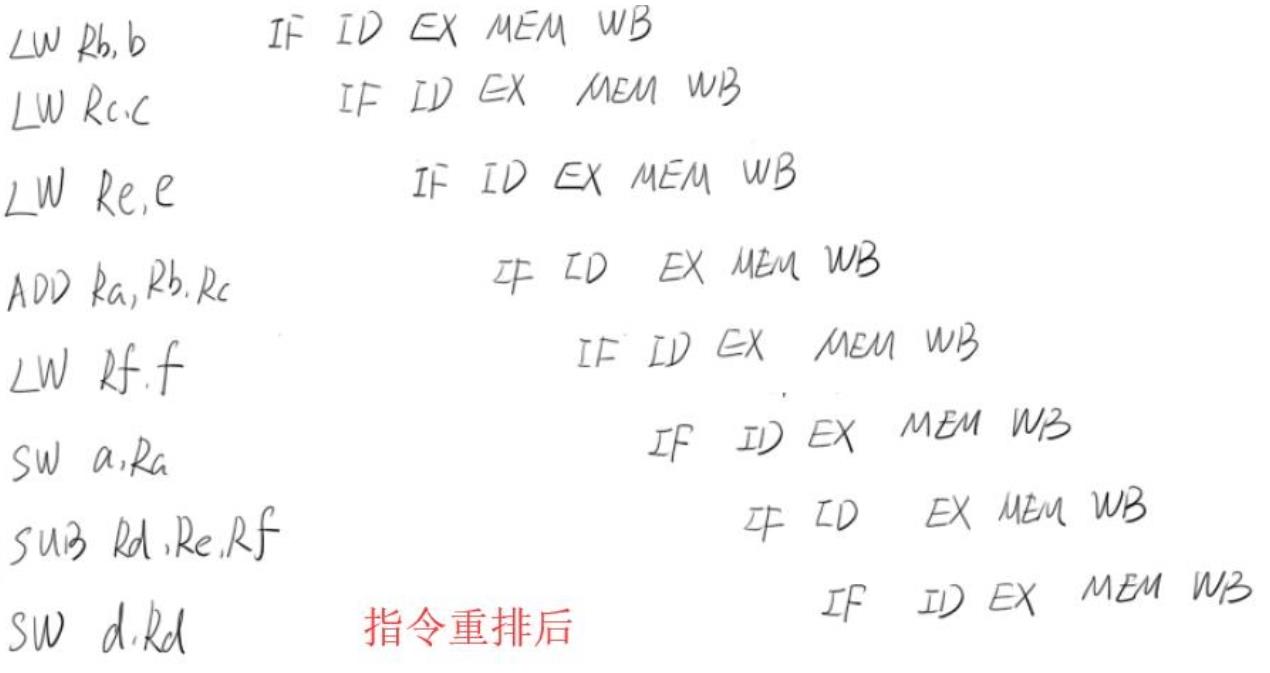 LW Rb,b IF ID EX MEM WB
LW Rc,c IF ID EX MEM WB
LW Re,e IF ID EX MEM WB
ADD Ra,Rb,Rc IF ID EX MEM WB
LW Rf,f IF ID EX MEM WB
SW a,Ra IF ID EX MEM WB
SUB Rd,Re,Rf IF ID EX MEM WB
SW d,Rd 指令重排后 IF ID EX MEM WB